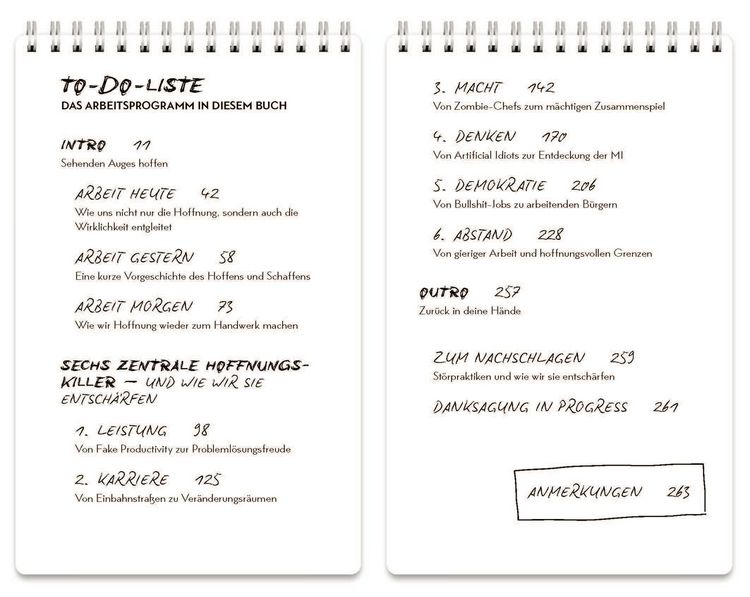 TO-DO-LISTE
DAS ARBEITSPROGRAMM IN DIESEM BUCH
INTRO 11
Sehenden Auges hoffen
ARBEIT HEUTE 42
Wie uns nicht nur die Hoffnung, sondern auch die
Wirklichkeit entgleitet
ARBEIT GESTERN 58
Eine kurze Vorgeschichte des Hoffens und Schaffens
ARBEIT MORGEN 73
Wie wir Hoffnung wieder zum Handwerk machen
SECHS ZENTRALE HOFFNUNGS-
KILLER – UND WIE WIR SIE
ENTSCHÄRFEN
1. LEISTUNG 98
Von Fake Productivity zur Problemlösungsfreude
2. KARRIERE 125
Von Einbahnstraßen zu Veränderungsräumen
3. MACHT 142
Von Zombie-Chefs zum mächtigen Zusammenspiel
4. DENKEN 170
Von Artificial Idiots zur Entdeckung der MI
5. DEMOKRATIE 206
Von Bullshit-Jobs zu arbeitenden Bürgern
6. ABSTAND 228
Von gieriger Arbeit und hoffnungsvollen Grenzen
OUTRO 257
Zurück in deine Hände
ZUM NACHSCHLAGEN 259
Störpraktiken und wie wir sie entschärfen
DANKSAGUNG IN PROGRESS 261
ANMERKUNGEN 263